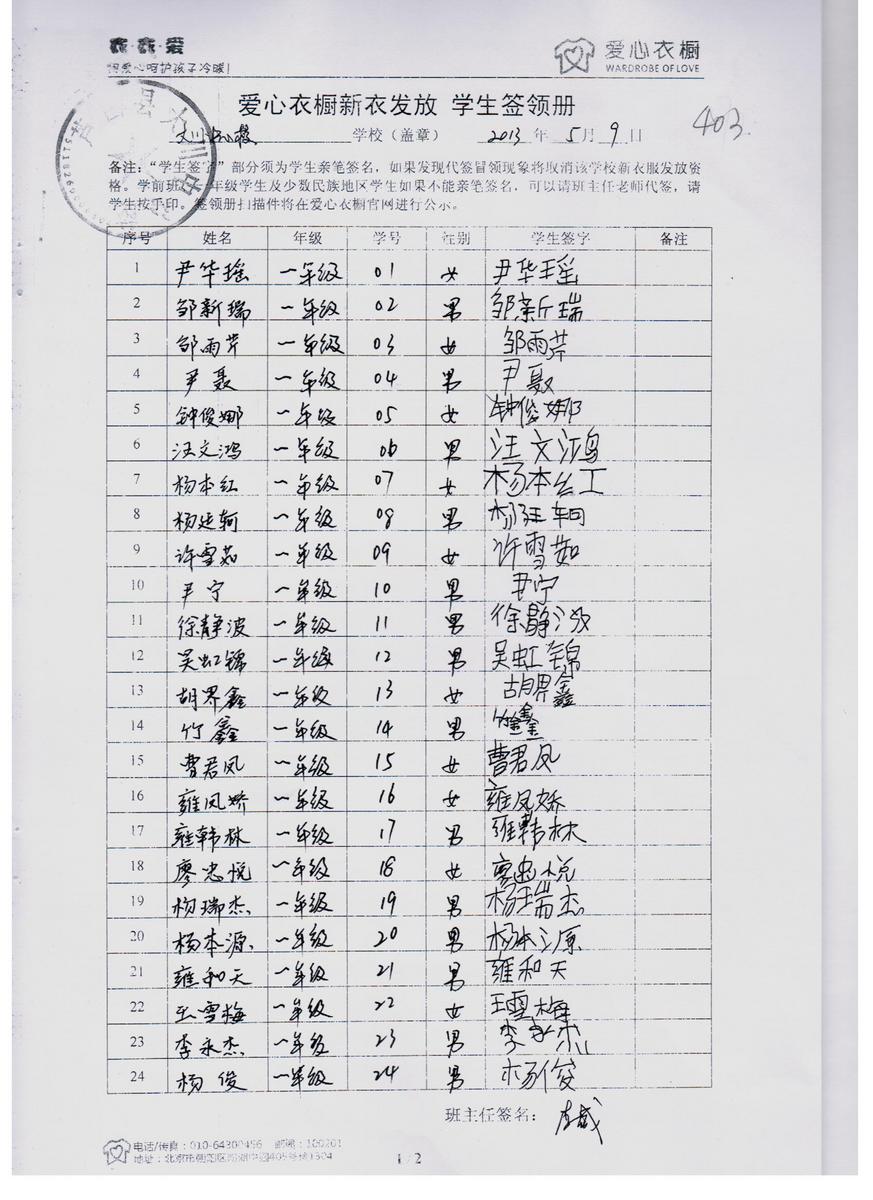 衣·衣·爱
用爱心呵护孩子冷暖!
爱心衣橱
WARDROBE OF LOVE
爱心衣橱新衣发放 学生签领册
403
学校（盖章） 2013 年 5 月 9 日
备注：“学生签字”部分须为学生亲笔签名，如果发现代签冒领现象将取消该学校新衣服发放资
格。学前班、一年级学生及少数民族地区学生如果不能亲笔签名，可以请班主任老师代签，请
学生按手印。签领册扫描件将在爱心衣橱官网进行公示。
序号 姓名 年级 学号 性别 学生签字 备注
1 尹华瑶 一年级 01 女 尹华瑶
2 邹新瑞 一年级 02 男 邹新瑞
3 邹雨芹 一年级 03 女 邹雨芹
4 尹聂 一年级 04 男 尹聂
5 钟俊娜 一年级 05 女 钟俊娜
6 汪文鸿 一年级 06 男 汪文鸿
7 杨本红 一年级 07 女 杨本红
8 杨廷轲 一年级 08 男 杨廷轲
9 许雪茹 一年级 09 女 许雪茹
10 尹宁 一年级 10 男 尹宁
11 徐静波 一年级 11 男 徐静波
12 吴虹锦 一年级 12 男 吴虹锦
13 胡界鑫 一年级 13 女 胡界鑫
14 竹鑫 一年级 14 男 竹鑫
15 曹君凤 一年级 15 女 曹君凤
16 雍凤娇 一年级 16 女 雍凤娇
17 雍韩林 一年级 17 男 雍韩林
18 廖忠悦 一年级 18 女 廖忠悦
19 杨瑞杰 一年级 19 男 杨瑞杰
20 杨本源 一年级 20 男 杨本源
21 雍和天 一年级 21 男 雍和天
22 王雪梅 一年级 22 女 王雪梅
23 李永杰 一年级 23 男 李永杰
24 杨俊 一年级 24 男 杨俊
班主任签名：
电话/传真：010-64300456 邮编：100201
1/2